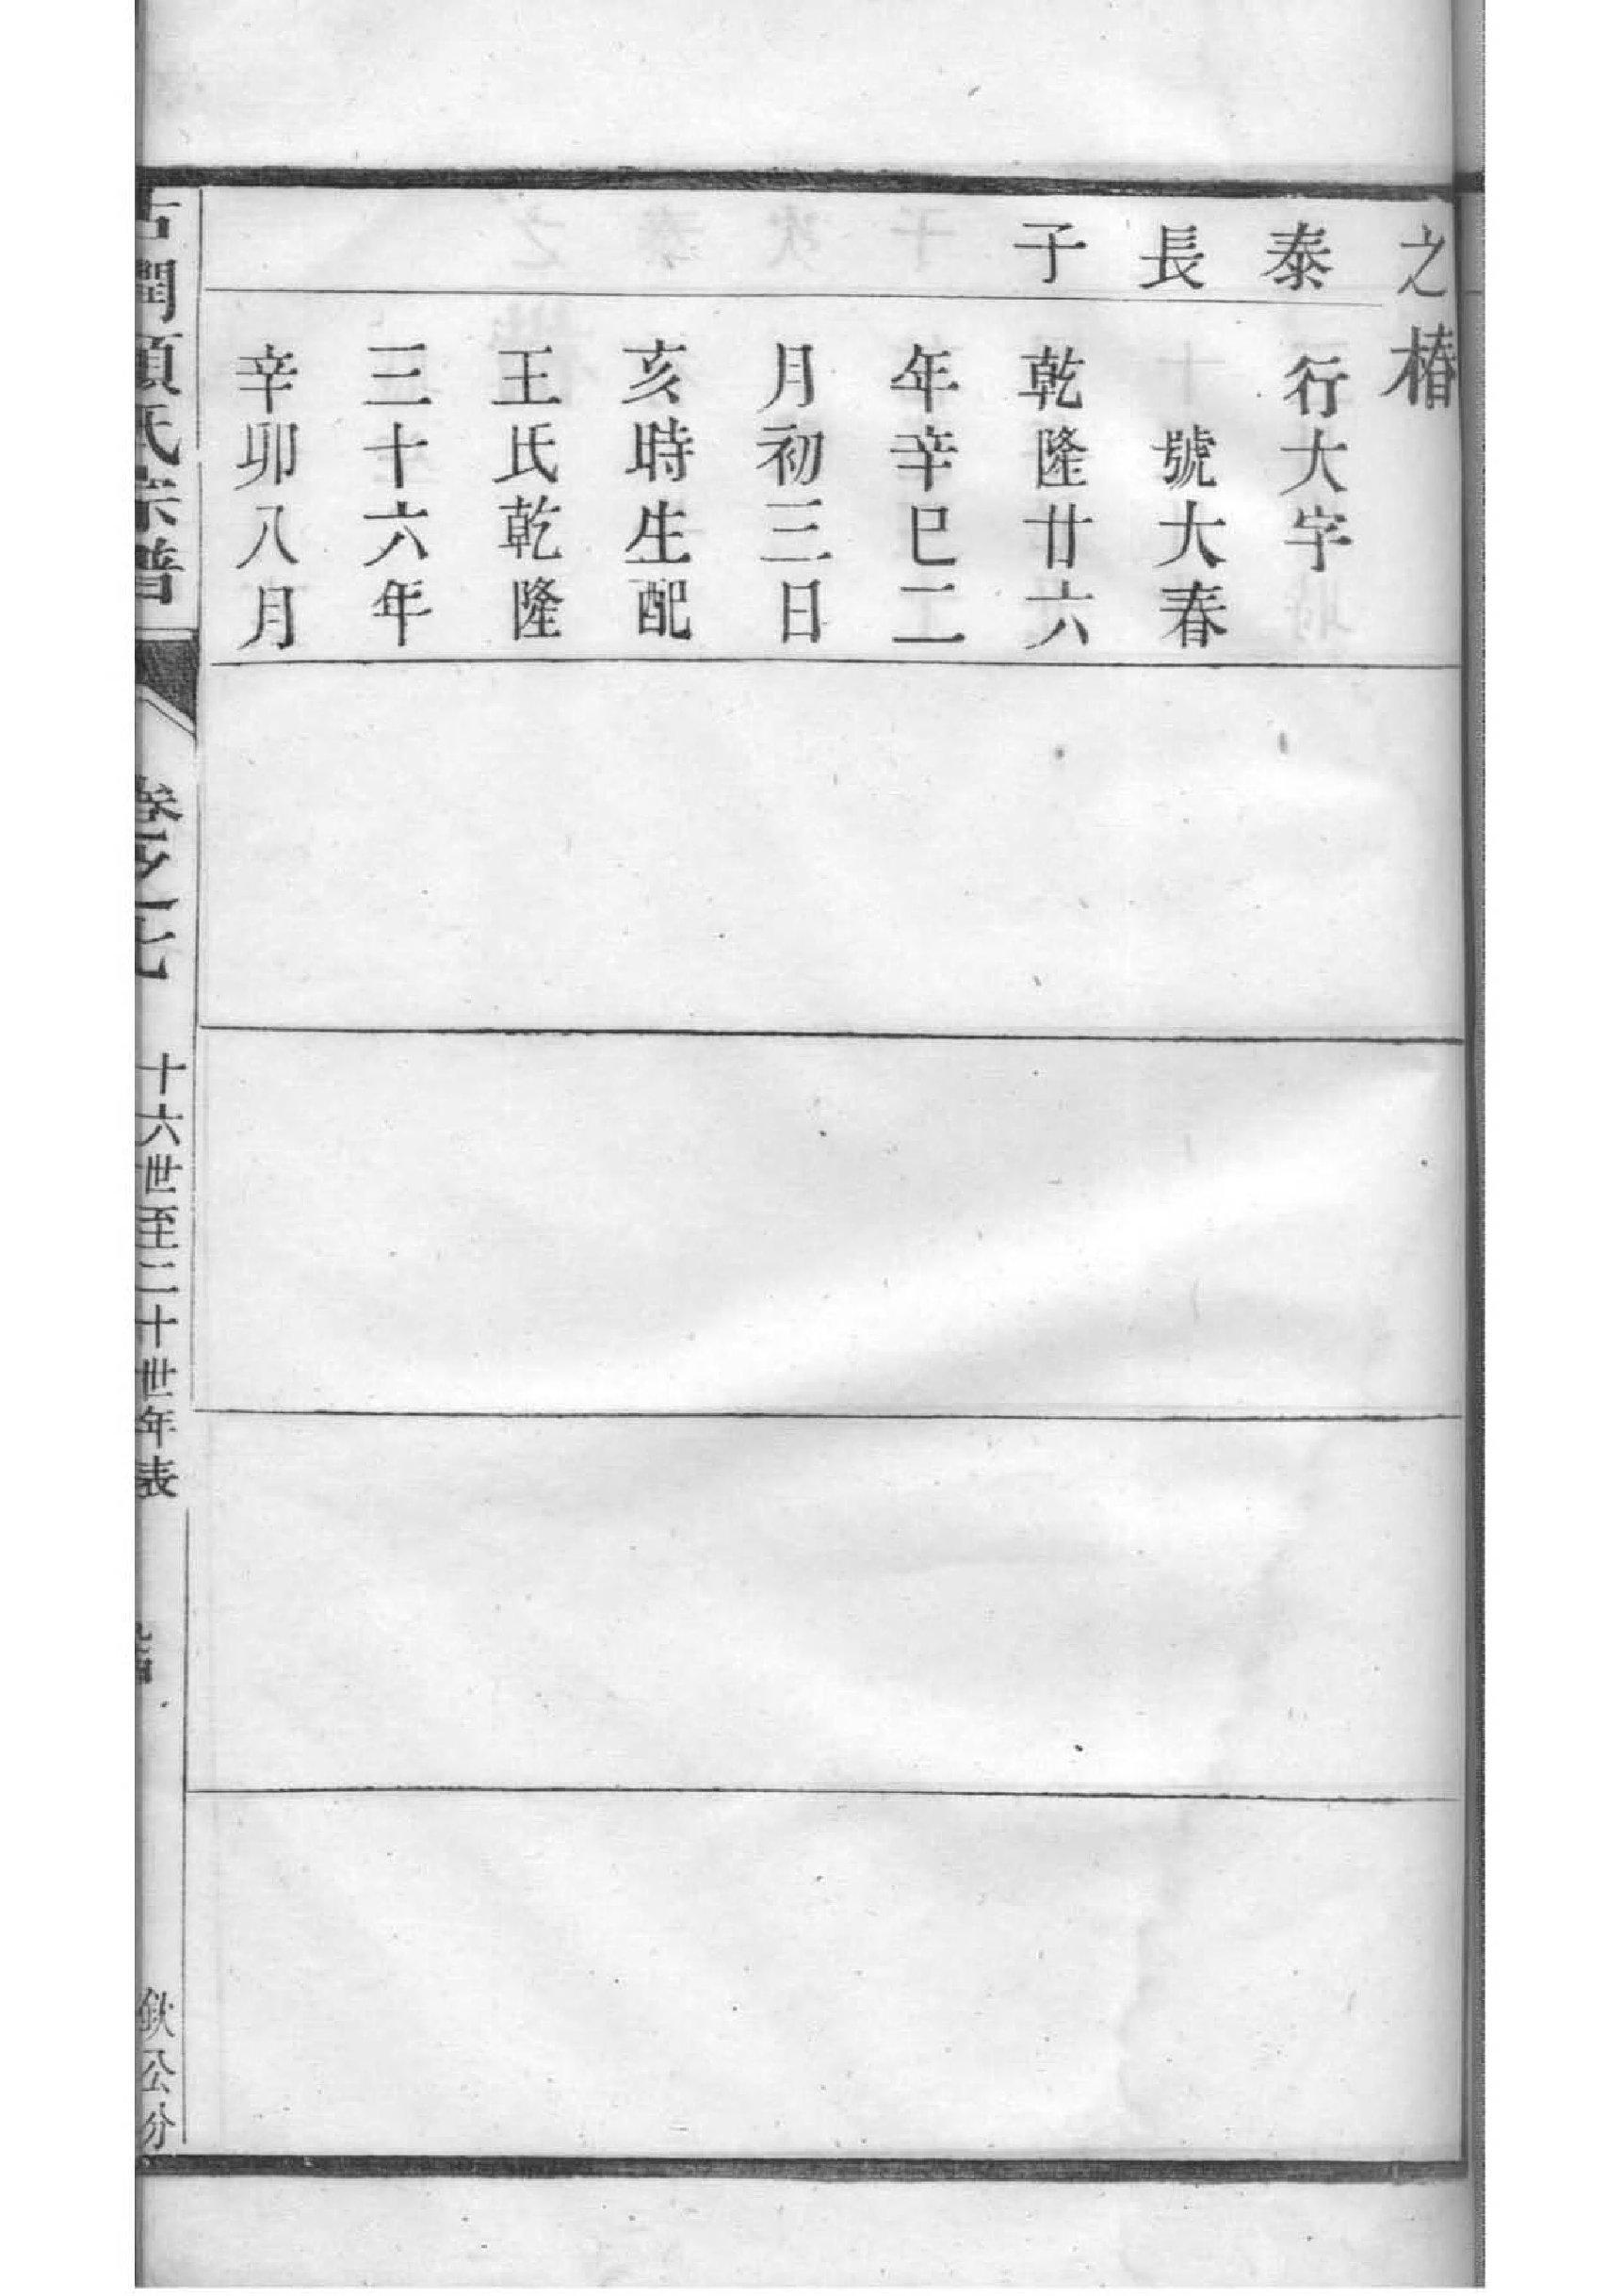 之椿
泰長子
行大字
號大春
乾隆廿六
年辛巳二
月初三日
亥時生配
王氏乾隆
三十六年
辛卯八月
氏宗譜
卷之七
十六世至二十世年表
欽公分